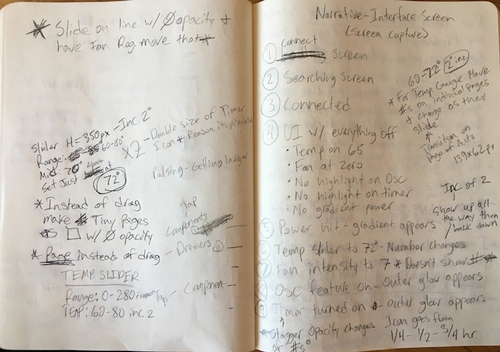 * Slide on line w/ Ø opacity &
have Fan Rag move that *
Slider H=350px - Inc. 2°
Range: 60-80°
Mid: 70°
Set Just at
72°
x2 - Double size of Timer
Icon * Reason it's
Pulsing - Getting larger
* Instead of drag
make Tiny Pages
□ w/ Ø opacity
* Page instead of drag
Tap
Components
- Drawers
TEMP SLIDER
Range: 0-280
TEMP: 60-80 inc. 2
Tap - Component
Narrative-Interface Screen
(Screen Capture)
① Connect Screen
② Searching Screen
③ Connected
④ UI w/ everything off
• Temp on 65
• Fan at Zero
• No highlight on Osc
• No highlight on timer
• No gradient power
⑤ Power hit - gradient appears
⑥ Temp Slider to 72° - Number changes
⑦ Fan intensity to 7 * Doesn't show #
⑧ Osc feature on - Outer glow appears
⑨ Timer turned on - Outer glow appears
* Stagger Opacity changes
or #s
Icon goes from
1/4 - 1/2 - 3/4 hr
60-72° 2° inc
* For Temp Gauge Have
#s on individual Pages
& change as they
slide
*
Transition on
Page of Auto
139x62px
Inc of 2
Show up all
the way then
back down